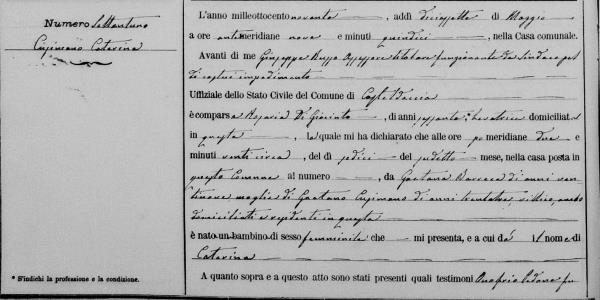 Numero Settantuno
Cusimano Caterina
* S'indichi la professione e la condizione.
L'anno milleottocento novanta, addì diciassette di Maggio
a ore antemeridiane nove e minuti quindici, nella Casa comunale.
Avanti di me Giuseppe Russo Assessore delibere funzionante da Sindaco pel
di costui impedimento
Uffiziale dello Stato Civile del Comune di Casteldaccia
è comparsa Rosaria Di Giacinto, di anni sessanta, levatrice domiciliata
in questa, la quale mi ha dichiarato che alle ore pomeridiane due e
minuti venti circa, del dì sedici del sudetto mese, nella casa posta in
questo Comune al numero, da Gaetana anni ven
tinove moglie di Gaetano Cusimano di anni trentatre, ambo
domiciliati e residenti in questa
è nato un bambino di sesso femminile che mi presenta, e a cui dà il nome di
Caterina
A quanto sopra e a questo atto sono stati presenti quali testimoni Onofrio fu